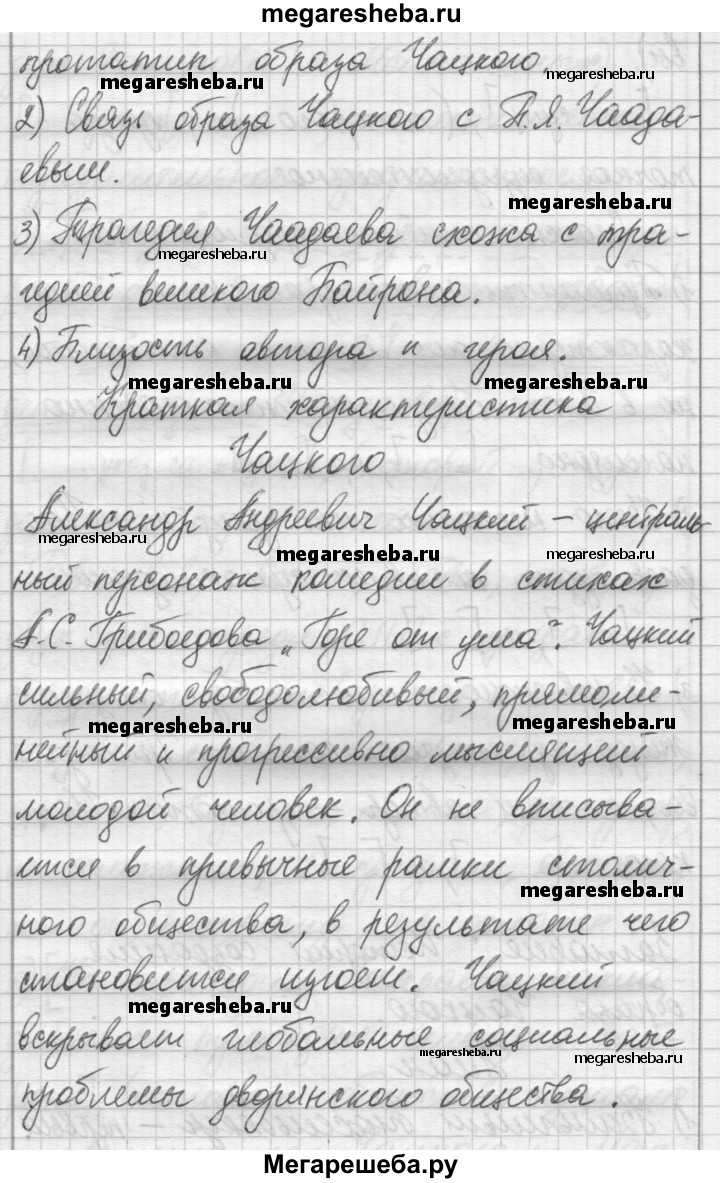 megaresheba.ru
прототип образа Чацкого.
megaresheba.ru
megaresheba.ru
2) Связь образа Чацкого с П.Я. Чаада-
евым.
megaresheba.ru
3) Трагедия Чаадаева схожа с тра-
megaresheba.ru
гедией великого Байрона.
4) Близость автора и героя.
megaresheba.ru
megaresheba.ru
Краткая характеристика
Чацкого
Александр Андреевич Чацкий – централь-
megaresheba.ru
megaresheba.ru
megaresheba.ru
ный персонаж комедии в стихах
А.С. Грибоедова „Горе от ума“. Чацкий
сильный, свободолюбивый, прямоли-
megaresheba.ru
megaresheba.ru
нейный и прогрессивно мыслящий
молодой человек. Он не вписыва-
ется в привычные рамки столич-
megaresheba.ru
ного общества, в результате чего
становится изгоем. Чацкий
megaresheba.ru
вскрывает глобальные социальные
megaresheba.ru
megaresheba.ru
проблемы дворянского общества.
Мегарешеба.ру